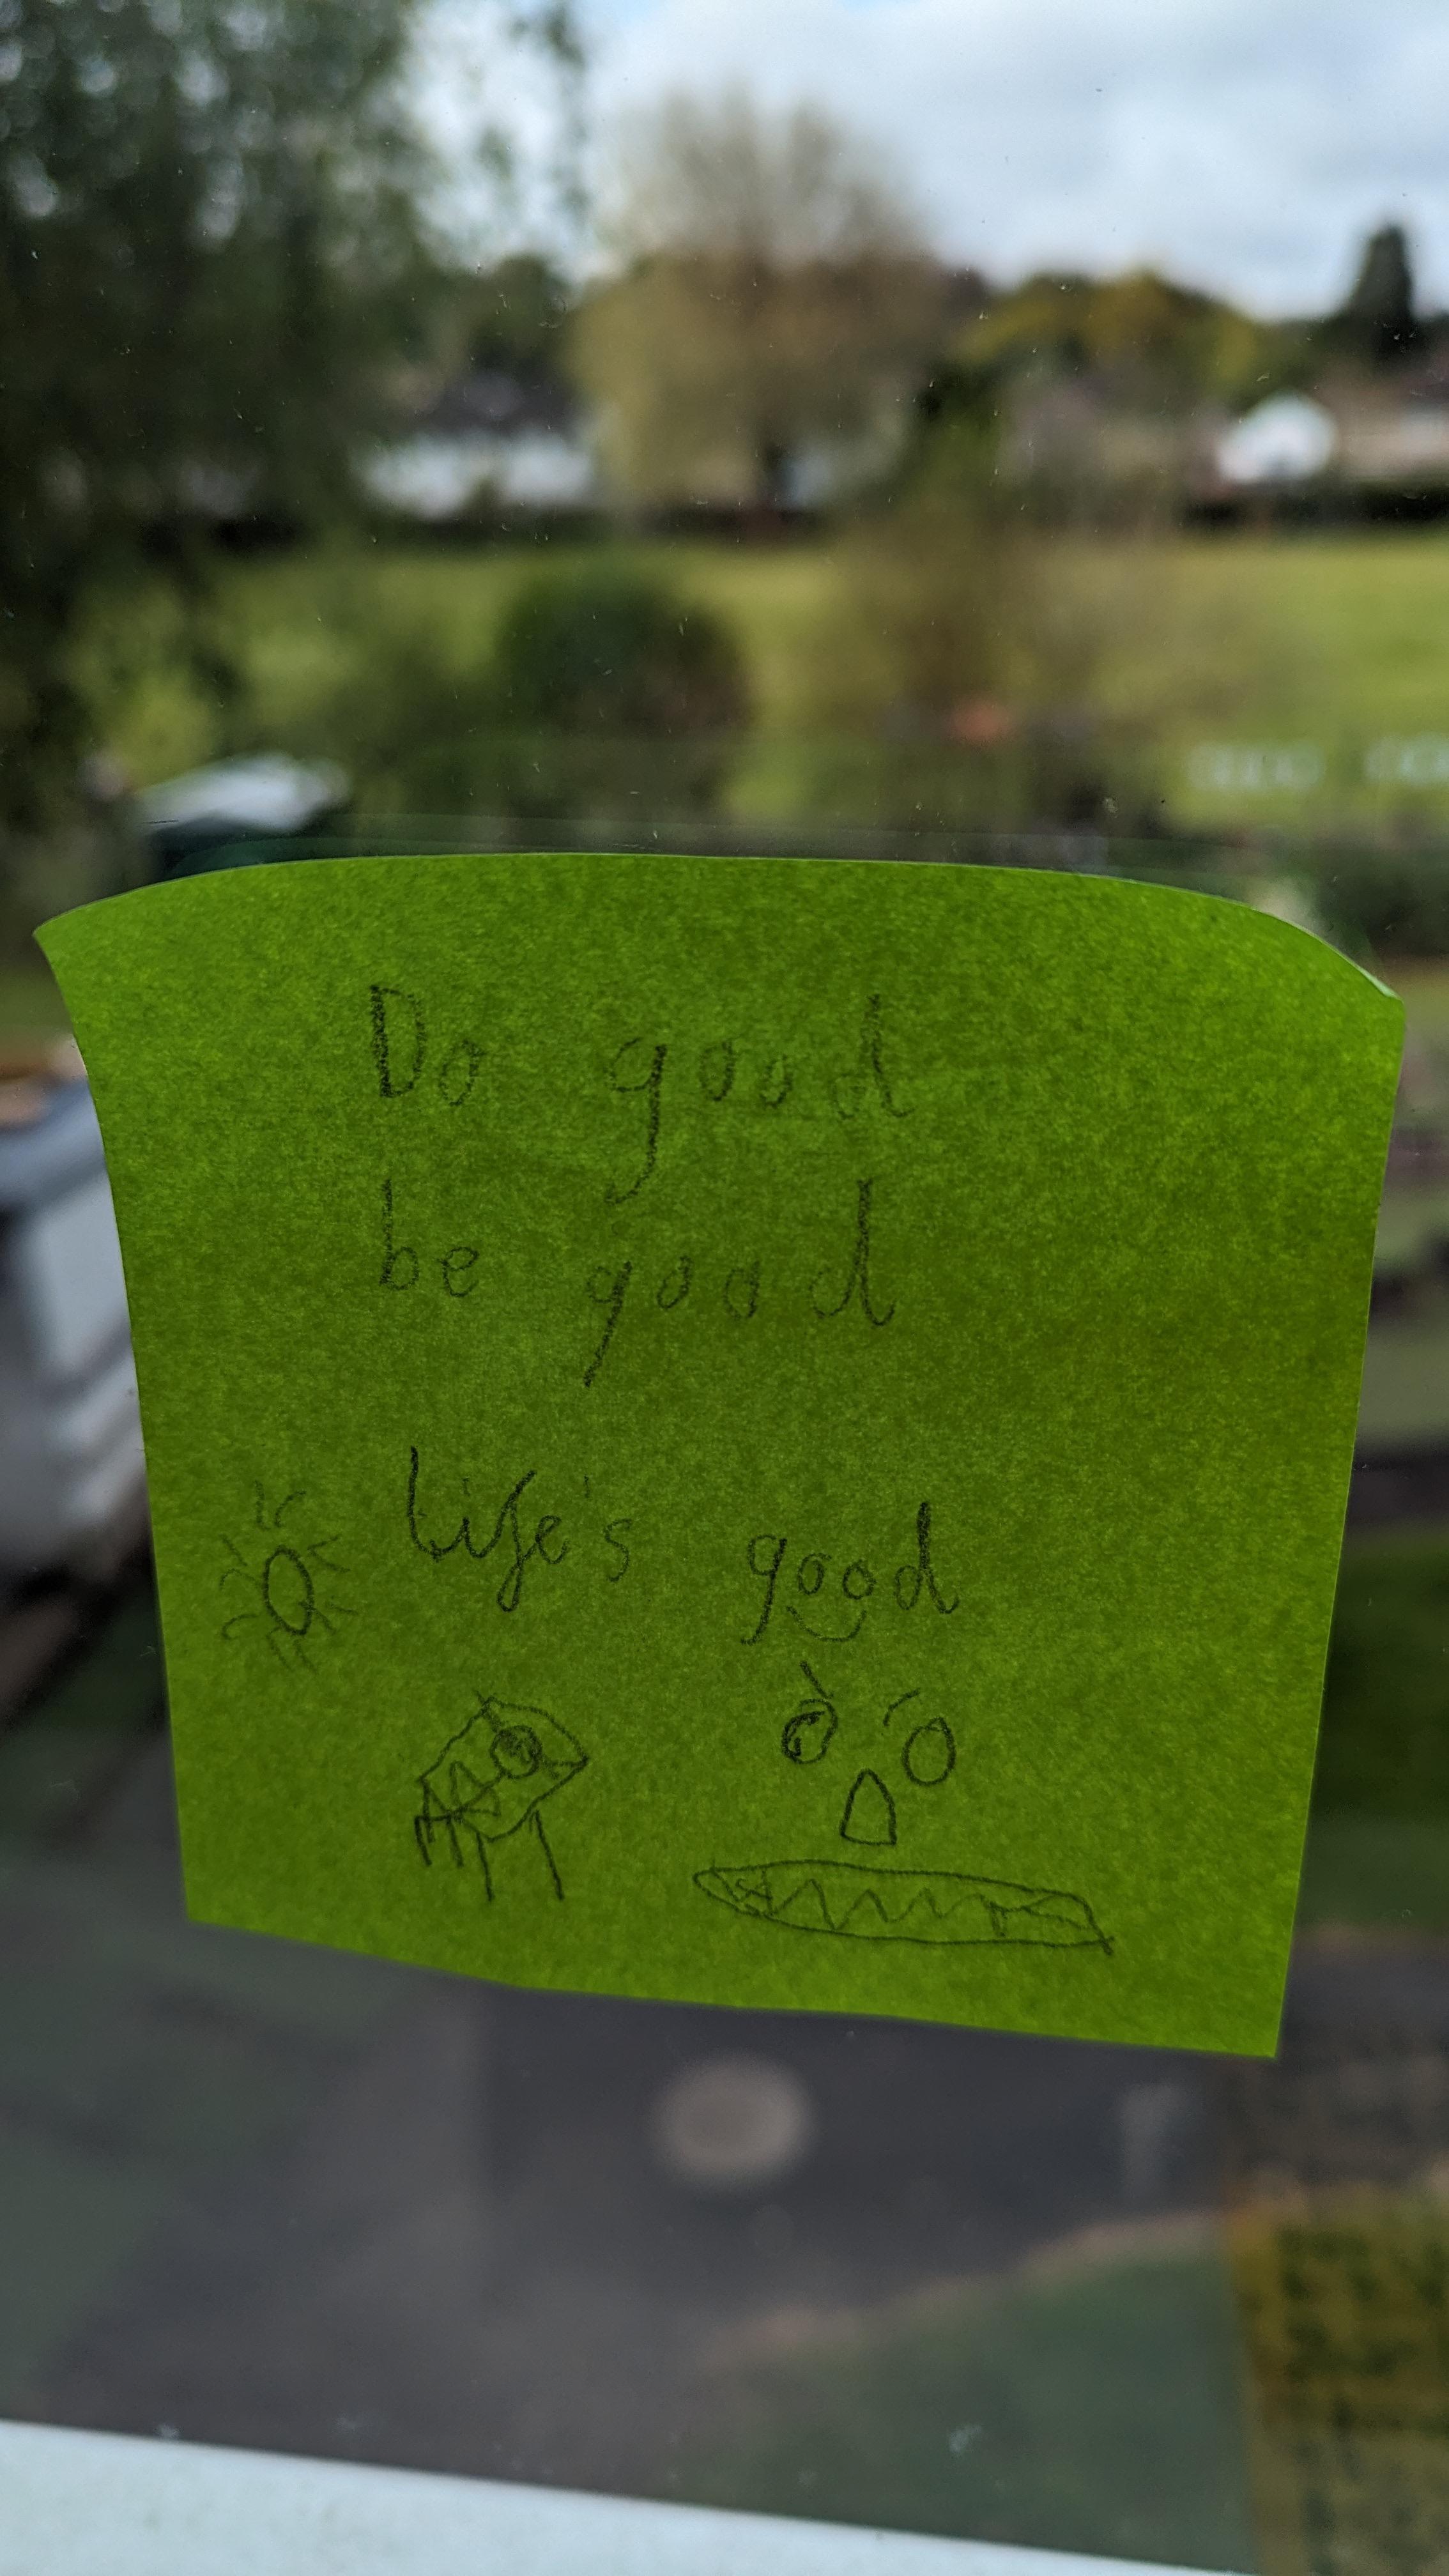 Do good
be good
Life's good